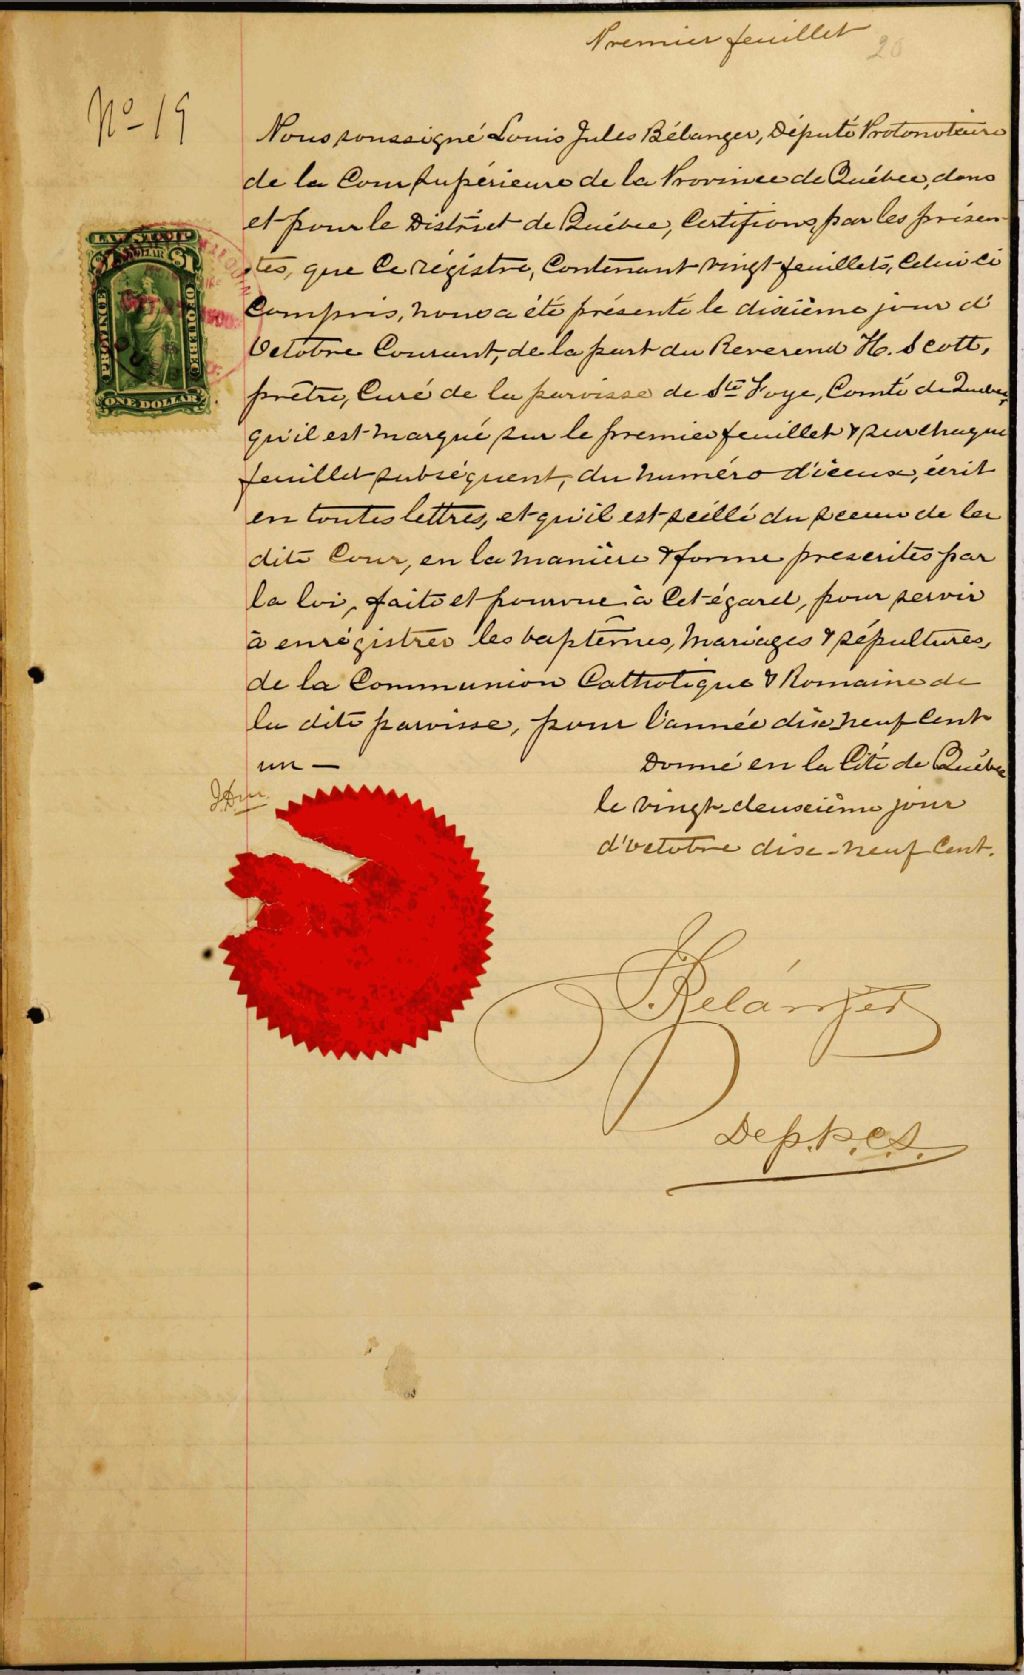 Premier feuillet
20
No 19
Nous soussigné Louis Jules Bélanger, Député Protonotaire
de la Cour Supérieure de la Province de Québec, dans
et pour le District de Québec, Certifions, par les présen-
tes, que Ce régistre, Contenant vingt feuillets, Celui ci
Compris, nous a été présenté le dixième jour d'
Octobre Courant, de la part du Reverend H. Scott,
prêtre, Curé de la paroisse de Ste Foye, Comté de Québec,
qu'il est marqué sur le premier feuillet & sur chaque
feuillet subséquent, du numéro d'iceux, écrit
en toutes lettres, et qu'il est scéllé du sceau de la
dite Cour, en la manière & forme prescrites par
la loi, faite et pourvue à Cet égard, pour servir
à enrégistrer les baptêmes, Mariages & sépultures,
de la Communion Catholique & Romaine de
la dite paroisse, pour l'année dix-neuf Cent
un —
Donné en la Cité de Québec
le vingt-deuxième jour
d'octobre dix-neuf Cent.
LAW STAMP
$1 DOLLAR $1
PROVINCE
QUEBEC
ONE DOLLAR
J. Bélanger
Dep. P. C. S.